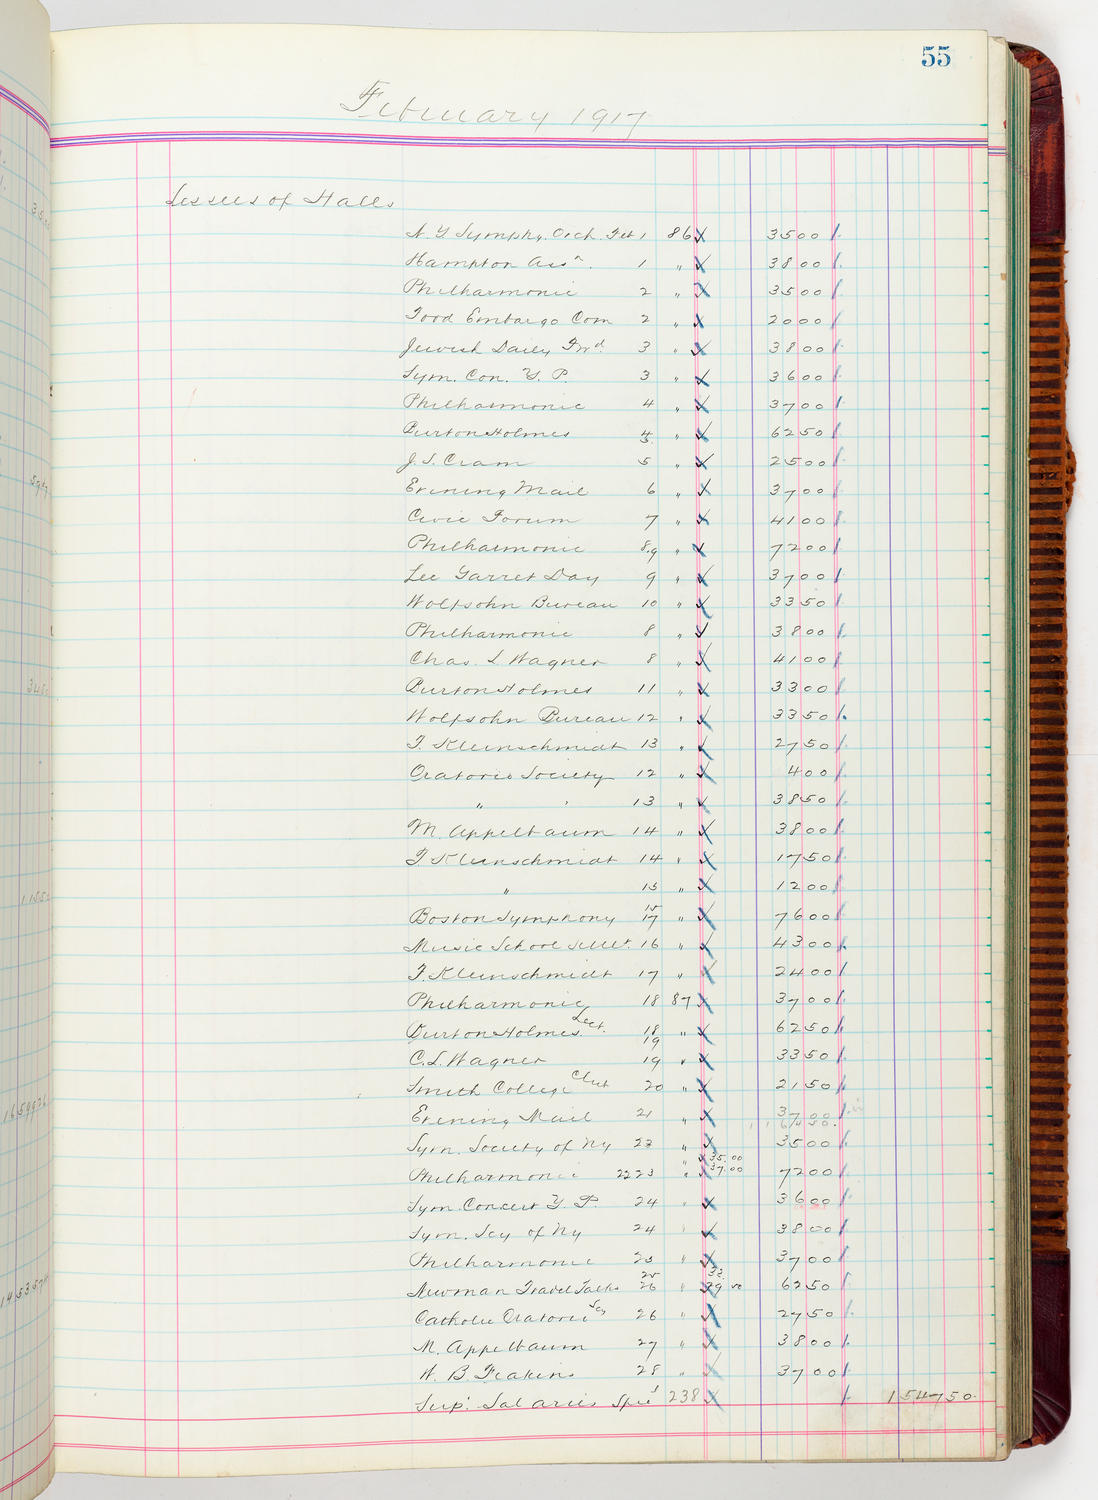 55
February 1917
Lessees of Halls
N.Y. Symphy. Orch. Feb 1 86 3500
Hampton Assn. 1 " 3800
Philharmonic 2 " 3500
Food Embargo Com 2 " 2000
Jewish Daily Fwd. 3 " 3800
Sym. Con. Y. P. 3 " 3600
Philharmonic 4 " 3700
Burton Holmes 4 5 " 6250
J. S. Cram 5 " 2500
Evening Mail 6 " 3700
Civic Forum 7 " 4100
Philharmonic 8,9 " 7200
Lee Garret Day 9 " 3700
Wolfsohn Bureau 10 " 3350
Philharmonic 8 " 3800
Chas. L Wagner 8 " 4100
Burton Holmes 11 " 3300
Wolfsohn Bureau 12 " 3350
F. Kleinschmidt 13 " 2750
Oratorio Society 12 " 400
" " 13 " 3850
M. Appelbaum 14 " 3800
F Kleinschmidt 14 " 1750
" 15 " 1200
Boston Symphony 15 17 " 7600
Music School Settlt. 16 " 4300
F. Kleinschmidt 17 " 2400
Philharmonic 18 87 3700
Burton Holmes Lect. 18 19 " 6250
C. L. Wagner 19 " 3350
Smith College Club 20 " 2150
Evening Mail 21 " 3700
Sym. Society of Ny 23 " 3500
" 35.00
Philharmonic 22 23 " 37.00 7200
Sym Concert Y. P. 24 " 3600
Sym. Scy of Ny 24 " 3800
Philharmonic 25 " 3700
Newman Travel Talks 25 26 " 6250
Catholic Oratorio Scy 26 " 2750
M. Appelbaum 27 " 3800
W. B. Feakins 28 " 3700
Sup. Salaries 238 154750